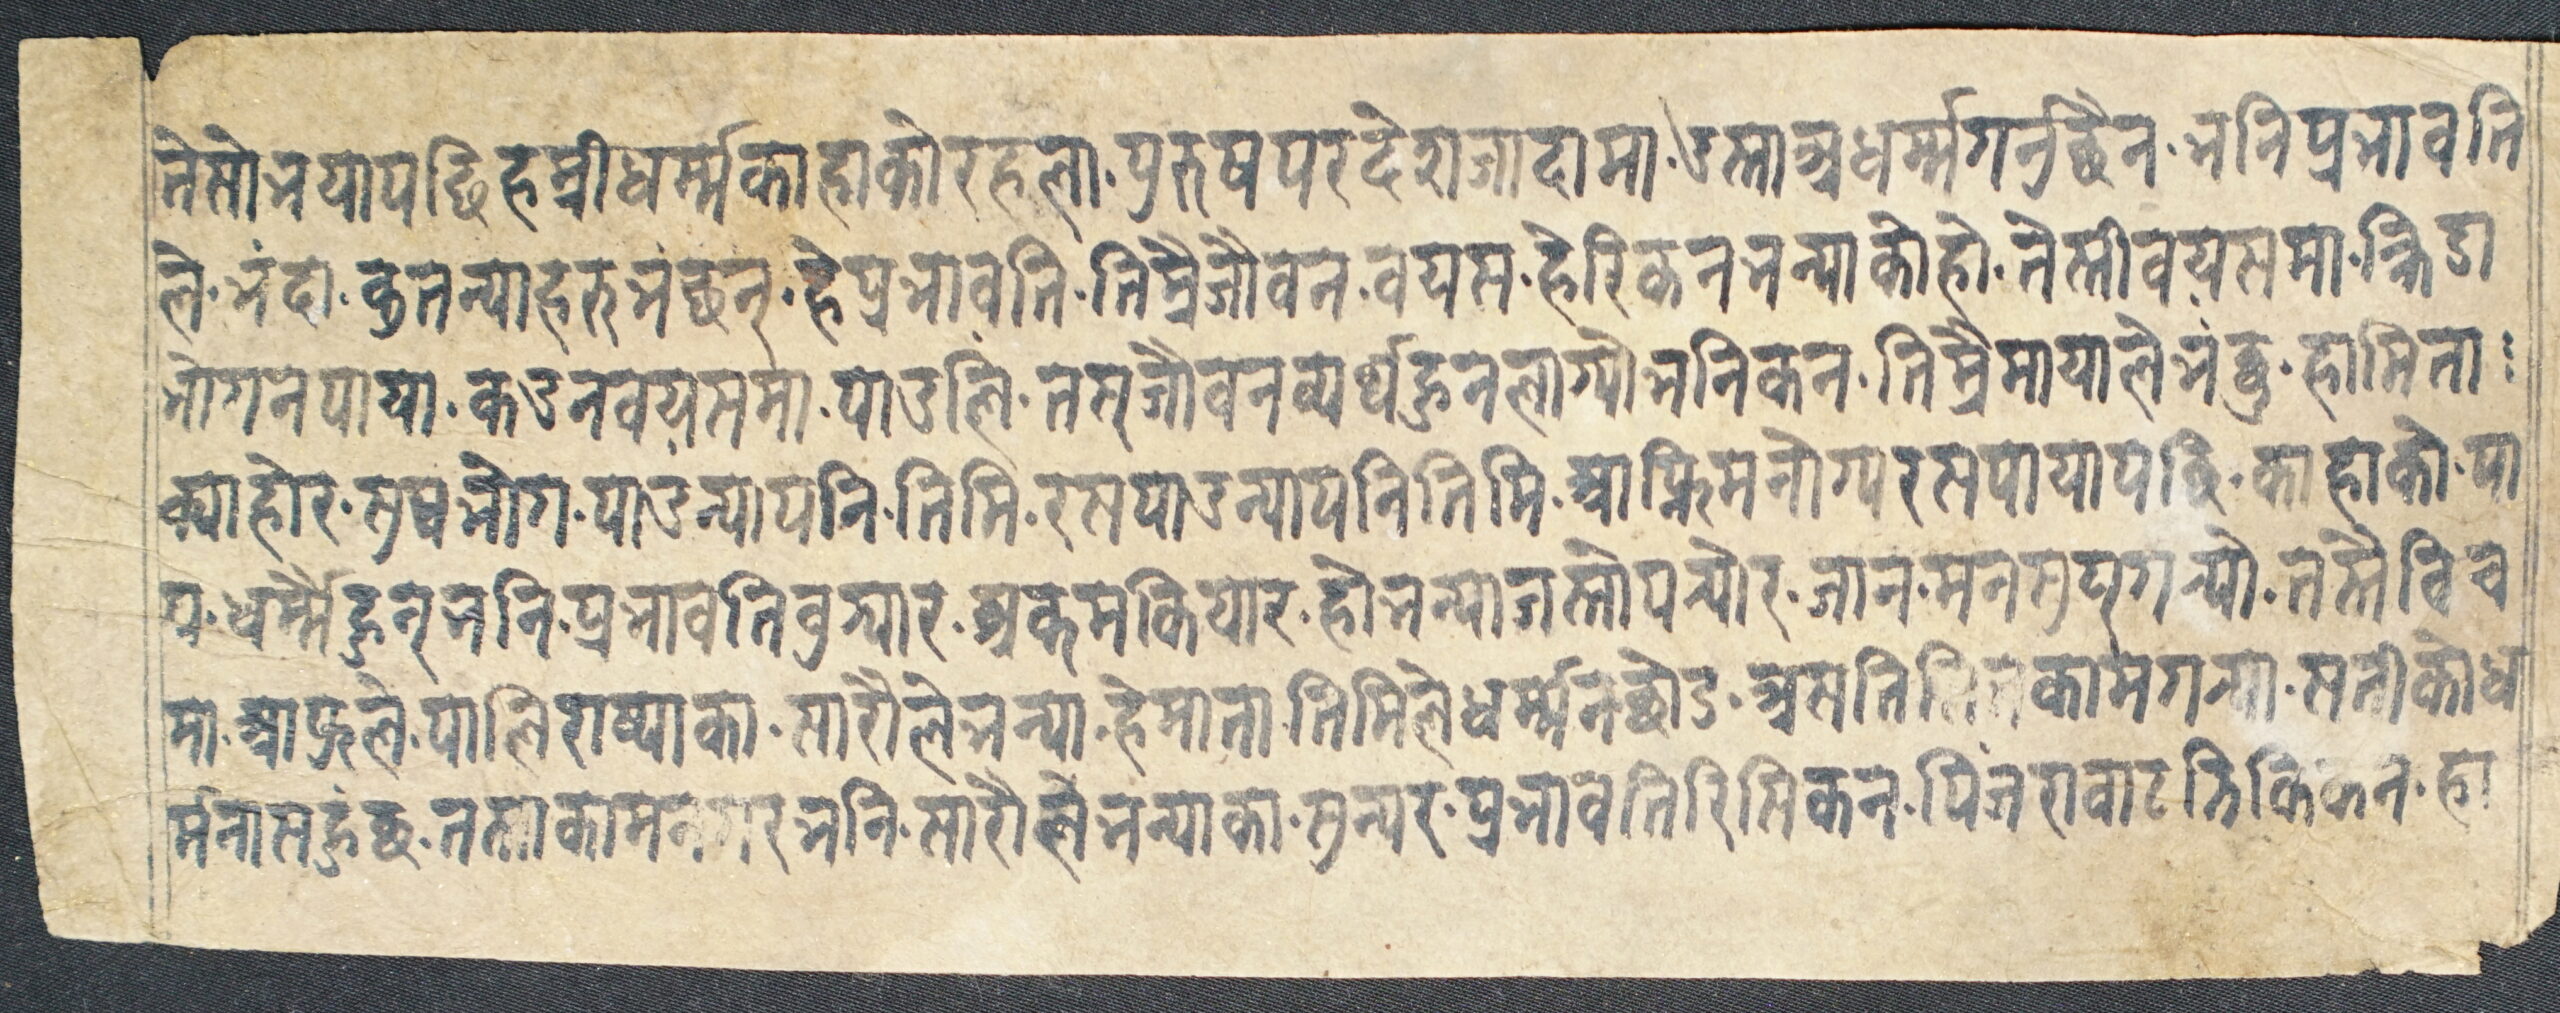 तेसो भयापछि हस्त्री धर्म्म काहाको रहला. पुरुष परदेश जादामा. उस्ता अधर्म्म गर्नुछैन. भनि प्रभावति
ले. भंदा. कुतन्याहरु भंछन्. हे प्रभावति. तिम्रै जौवन. वयस. हेरिकन भन्याको हो. तेस्तीवय़समा. क्रिडा
भोग नपाया. कउन वय़समा. पाउलि. तस् जौवन व्यर्थ हुन लाग्यो भनिकन. तिम्रै मायाले भंछु. हामिता
क्या हो र. सुष भोग. पाउन्या पनि. तिमि. रस पाउन्या पनि तिमि. आफ्नि मनोग्य रस पाया पछि. काहाको. पा
प. धर्म्मै हुन् भनि. प्रभावति वुझ्यार. अकमकियार. हो भन्या जस्तो पर्‍योर. जान. मनसुप गर्‍यो. तस्तै विच
मा. आफुले. पालि राष्याका. सारौले भन्या. हे माता. तिमिले धर्म्म नछोड. असति काम गर्‍या. सतीको ध
र्म नास हुंछ. तस्ता काम नगर भनि. सारौले भन्याका. सुन्यर. प्रभावति रिसिकन. पिंजरावाट झिकिकन. हा